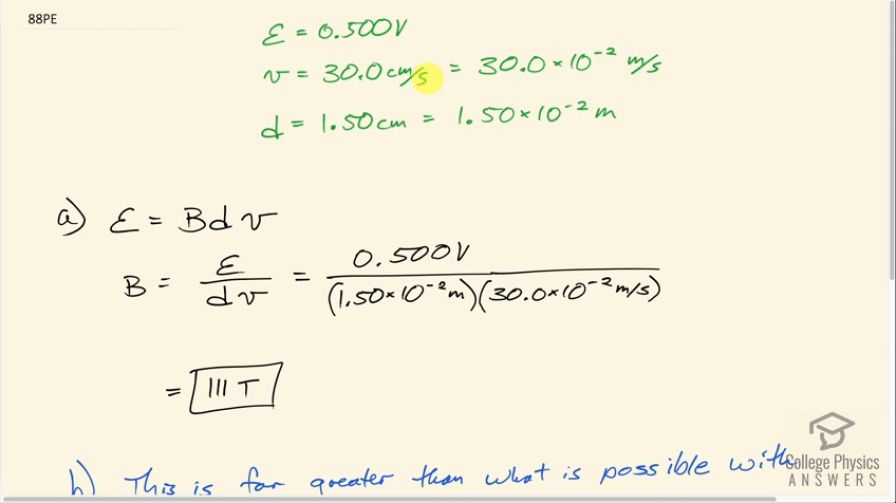 88PE
ε = 0.500V
v = 30.0 cm/s = 30.0 × 10⁻² m/s
d = 1.50 cm = 1.50 × 10⁻² m
a) ε = B d v
B = ε / dv = 0.500V / (1.50 × 10⁻² m)(30.0 × 10⁻² m/s)
= 111 T
b) This is far greater than what is possible with
College Physics
ANSWERS